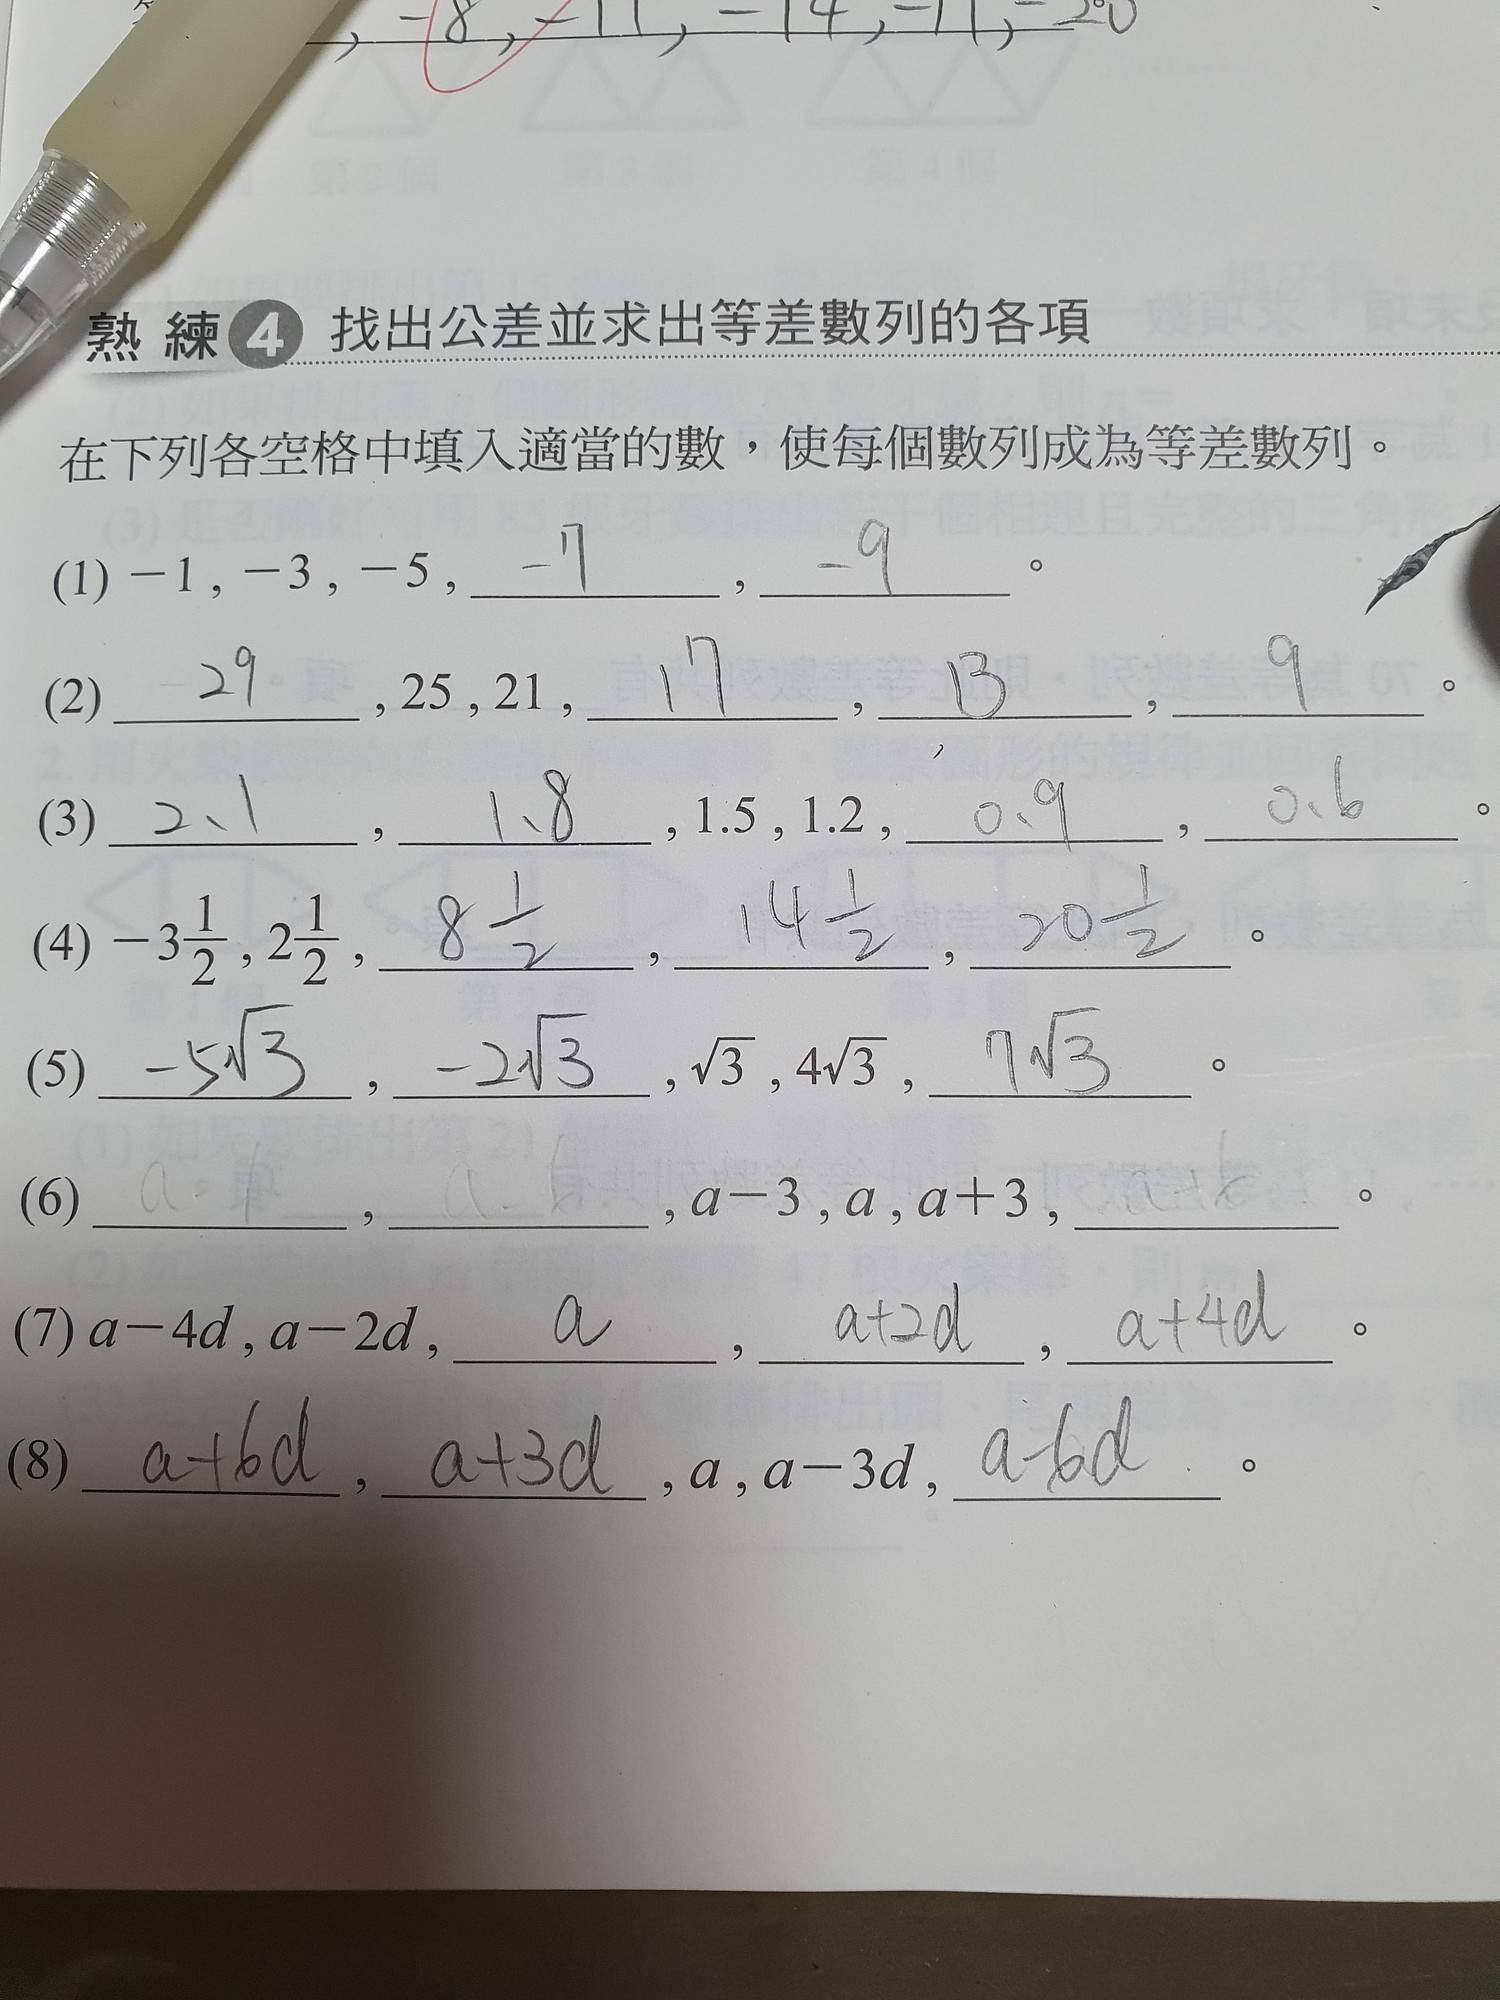 -8, -11, -14, -17, -20
熟 練 4 找出公差並求出等差數列的各項
在下列各空格中填入適當的數，使每個數列成為等差數列。
(1) －1 , －3 , －5 , -7 , -9 。
(2) 29 , 25 , 21 , 17 , 13 , 9 。
(3) 2、1 , 1、8 , 1.5 , 1.2 , 0、9 , 0、6 。
(4) －3 1/2 , 2 1/2 , 8 1/2 , 14 1/2 , 20 1/2 。
(5) -5√3 , -2√3 , √3 , 4√3 , 7√3 。
(6) , , a－3 , a , a＋3 , 。
(7) a－4d , a－2d , a , a+2d , a+4d 。
(8) a+6d , a+3d , a , a－3d , a-6d 。